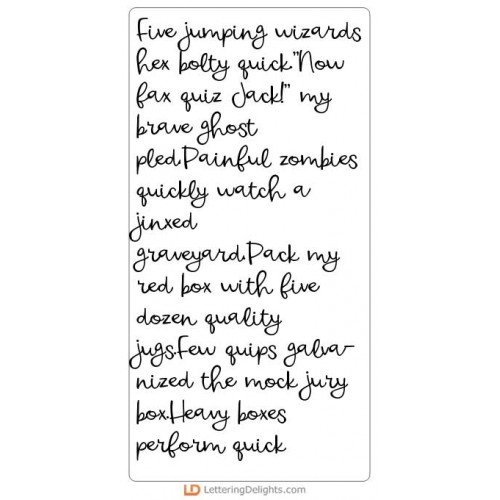 Five jumping wizards
hex bolty quick."Now
fax quiz Jack!" my
brave ghost
pled.Painful zombies
quickly watch a
jinxed
graveyard.Pack my
red box with five
dozen quality
jugs.Few quips galva-
nized the mock jury
box.Heavy boxes
perform quick
LD LetteringDelights.com